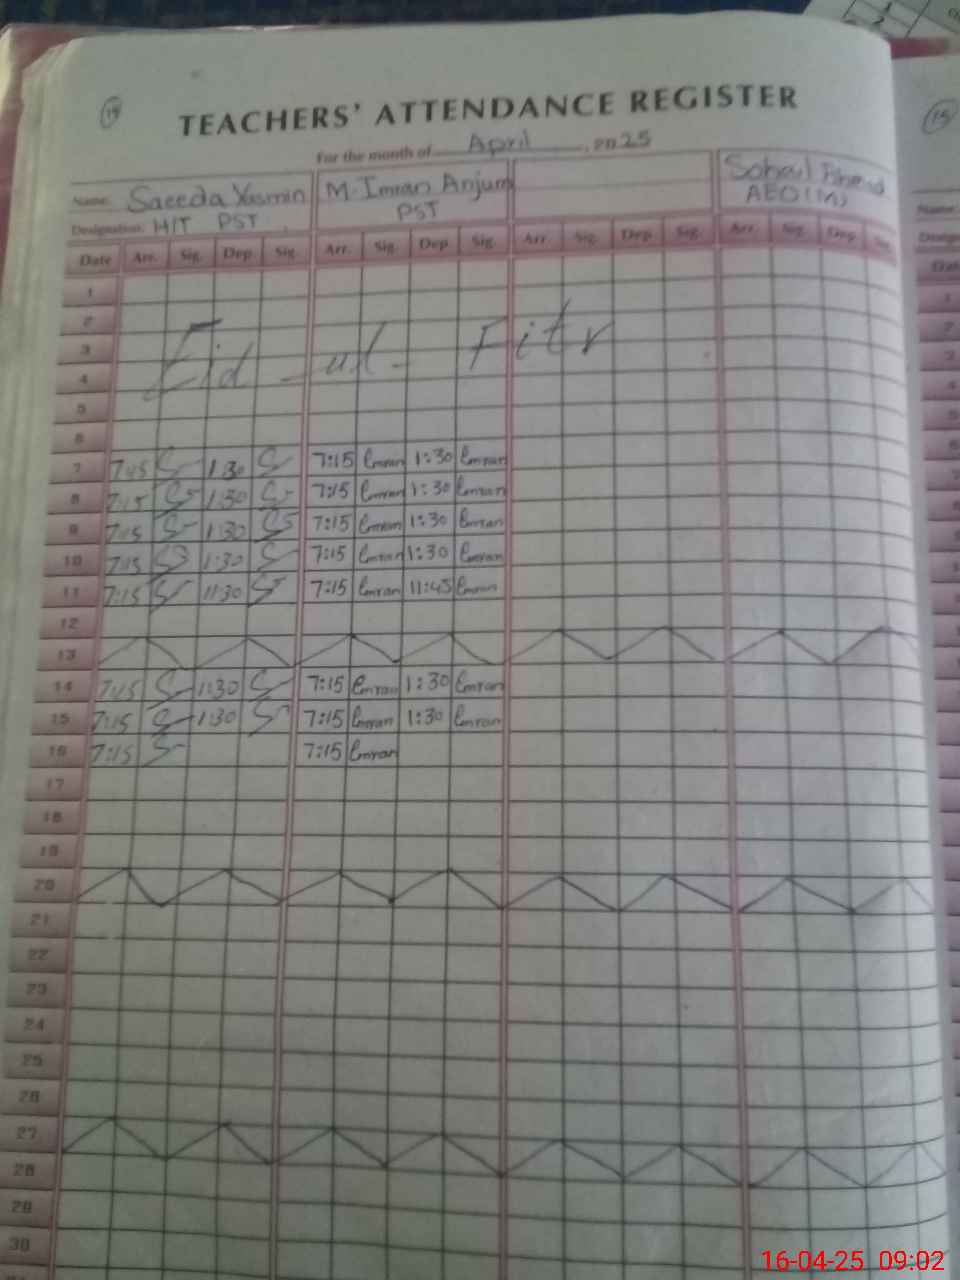 14
TEACHERS' ATTENDANCE REGISTER
For the month of April, 2025
Name: Saeeda Yasmin M. Imran Anjum Sohail
Designation: HIT PST PST AEO(M)
Date Arr. Sig. Dep. Sig. Arr. Sig. Dep. Sig. Arr. Sig. Dep. Sig. Arr. Sig. Dep. Sig.
1
2
3
Eid - ul - Fitr
4
5
6
7 7:15 S 1:30 S 7:15 Emran 1:30 Emran
8 7:15 S 1:30 S 7:15 Emran 1:30 Emran
9 7:15 S 1:30 S 7:15 Emran 1:30 Emran
10 7:15 S 1:30 S 7:15 Emran 1:30 Emran
11 7:15 S 11:30 S 7:15 Emran 11:45 Emran
12
13
14 7:15 S 1:30 S 7:15 Emran 1:30 Emran
15 7:15 S 1:30 S 7:15 Emran 1:30 Emran
16 7:15 S 7:15 Emran
17
18
19
20
21
22
23
24
25
26
27
28
29
30
15
Name:
16-04-25 09:02